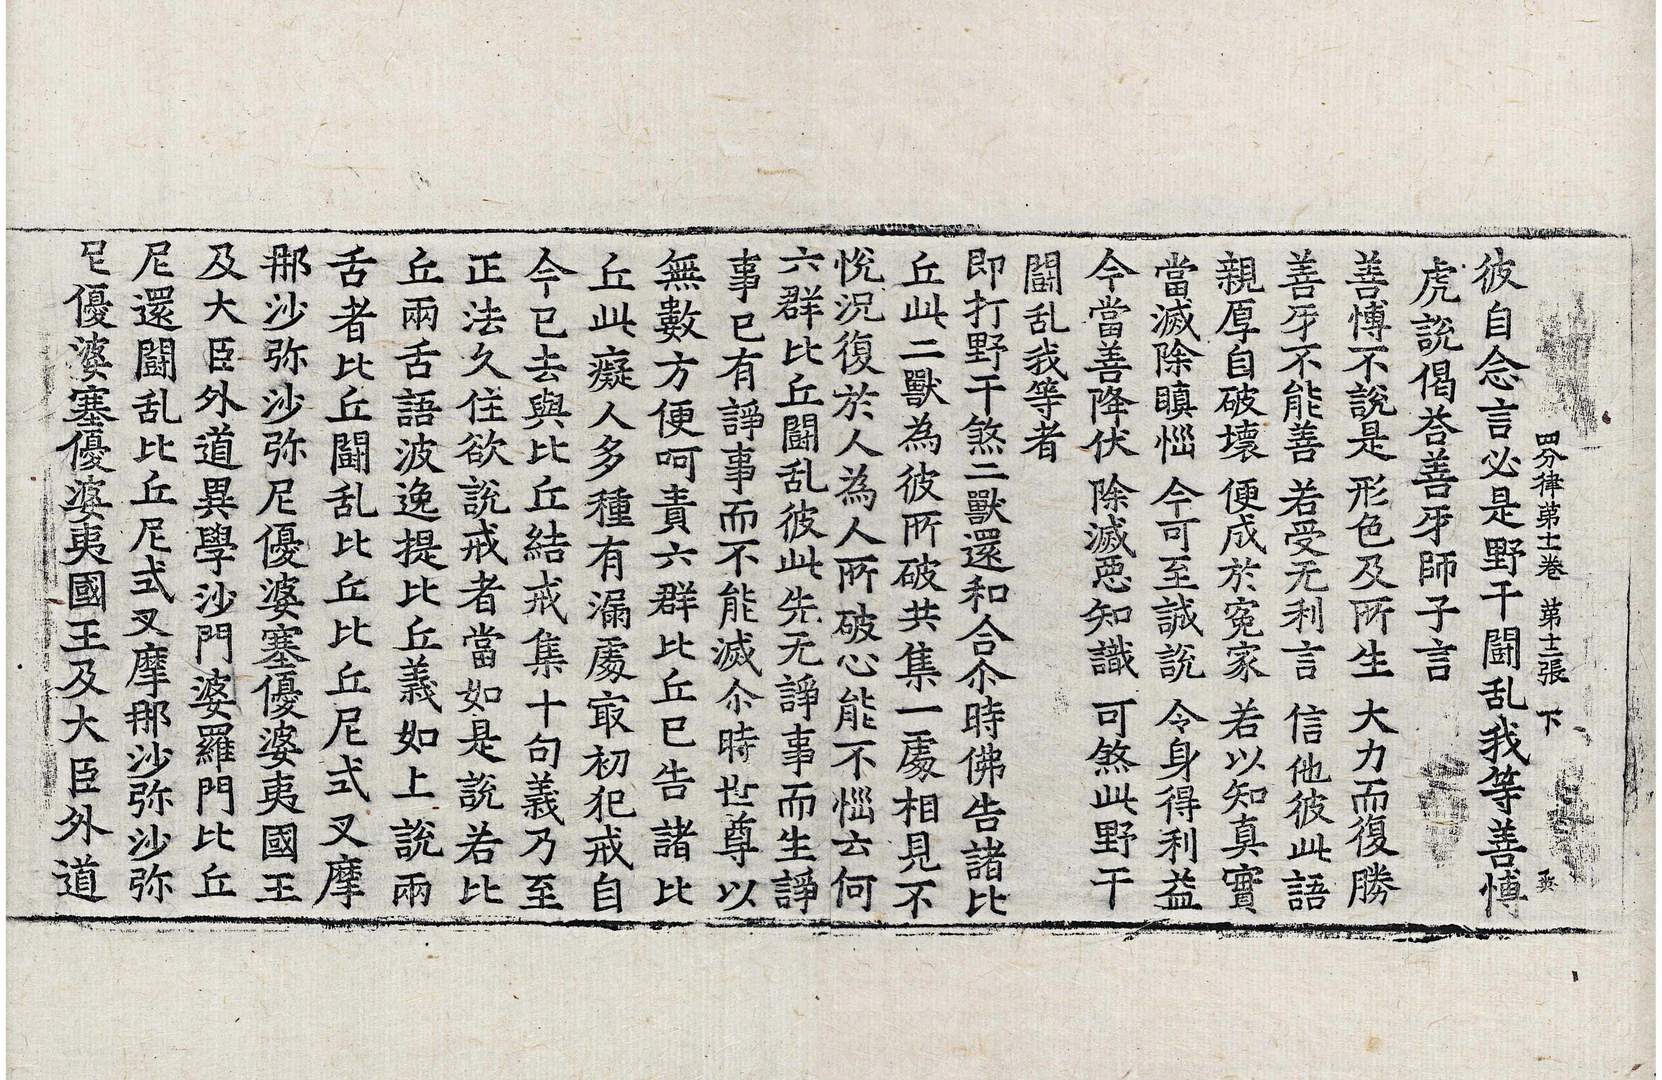 四分律第十一卷 第十三張 下
彼自念言必是野干鬪乱我等善愽
虎說偈荅善牙師子言
善愽不說是 形色及所生 大力而復勝
善牙不能善 若受无利言 信他彼此語
親厚自破壞 便成於寃家 若以知真實
當滅除瞋惱 今可至誠說 令身得利益
今當善降伏 除滅惡知識 可煞此野干
鬪乱我等者
即打野干煞二獸還和合尒時佛告諸比
丘此二獸為彼所破共集一處相見不
悅況復於人為人所破心能不惱云何
六群比丘鬪乱彼此先无諍事而生諍
事已有諍事而不能滅尒時世尊以
無數方便呵責六群比丘已告諸比
丘此癡人多種有漏處㝡初犯戒自
今已去與比丘結戒集十句義乃至
正法久住欲說戒者當如是說若比
丘兩舌語波逸提比丘義如上說兩
舌者比丘鬪乱比丘比丘尼式叉摩
那沙弥沙弥尼優婆塞優婆夷國王
及大臣外道異學沙門婆羅門比丘
尼還鬪乱比丘尼式叉摩那沙弥沙弥
尼優婆塞優婆夷國王及大臣外道